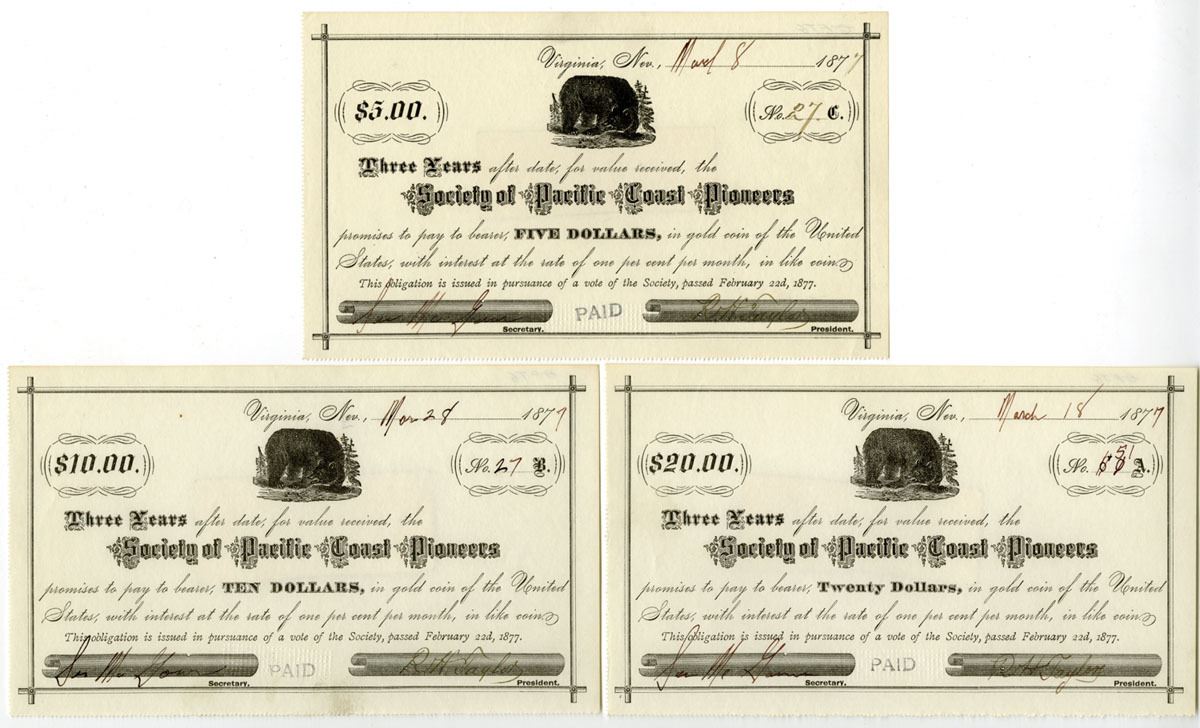 Virginia, Nev., March 8 1877
$5.00.
No. 27 C.
Three Years after date, for value received, the
Society of Pacific Coast Pioneers
promises to pay to bearer, FIVE DOLLARS, in gold coin of the United
States, with interest at the rate of one per cent per month, in like coin.
This obligation is issued in pursuance of a vote of the Society, passed February 22d, 1877.
PAID R.H. Taylor
Secretary. President.
Virginia, Nev., Mar 28 1877
$10.00.
No. 27 B.
Three Years after date, for value received, the
Society of Pacific Coast Pioneers
promises to pay to bearer, TEN DOLLARS, in gold coin of the United
States, with interest at the rate of one per cent per month, in like coin.
This obligation is issued in pursuance of a vote of the Society, passed February 22d, 1877.
PAID R.H. Taylor
Secretary. President.
Virginia, Nev., March 18 1877
$20.00.
No. 51 A.
Three Years after date, for value received, the
Society of Pacific Coast Pioneers
promises to pay to bearer, Twenty Dollars, in gold coin of the United
States, with interest at the rate of one per cent per month, in like coin.
This obligation is issued in pursuance of a vote of the Society, passed February 22d, 1877.
PAID R.H. Taylor
Secretary. President.